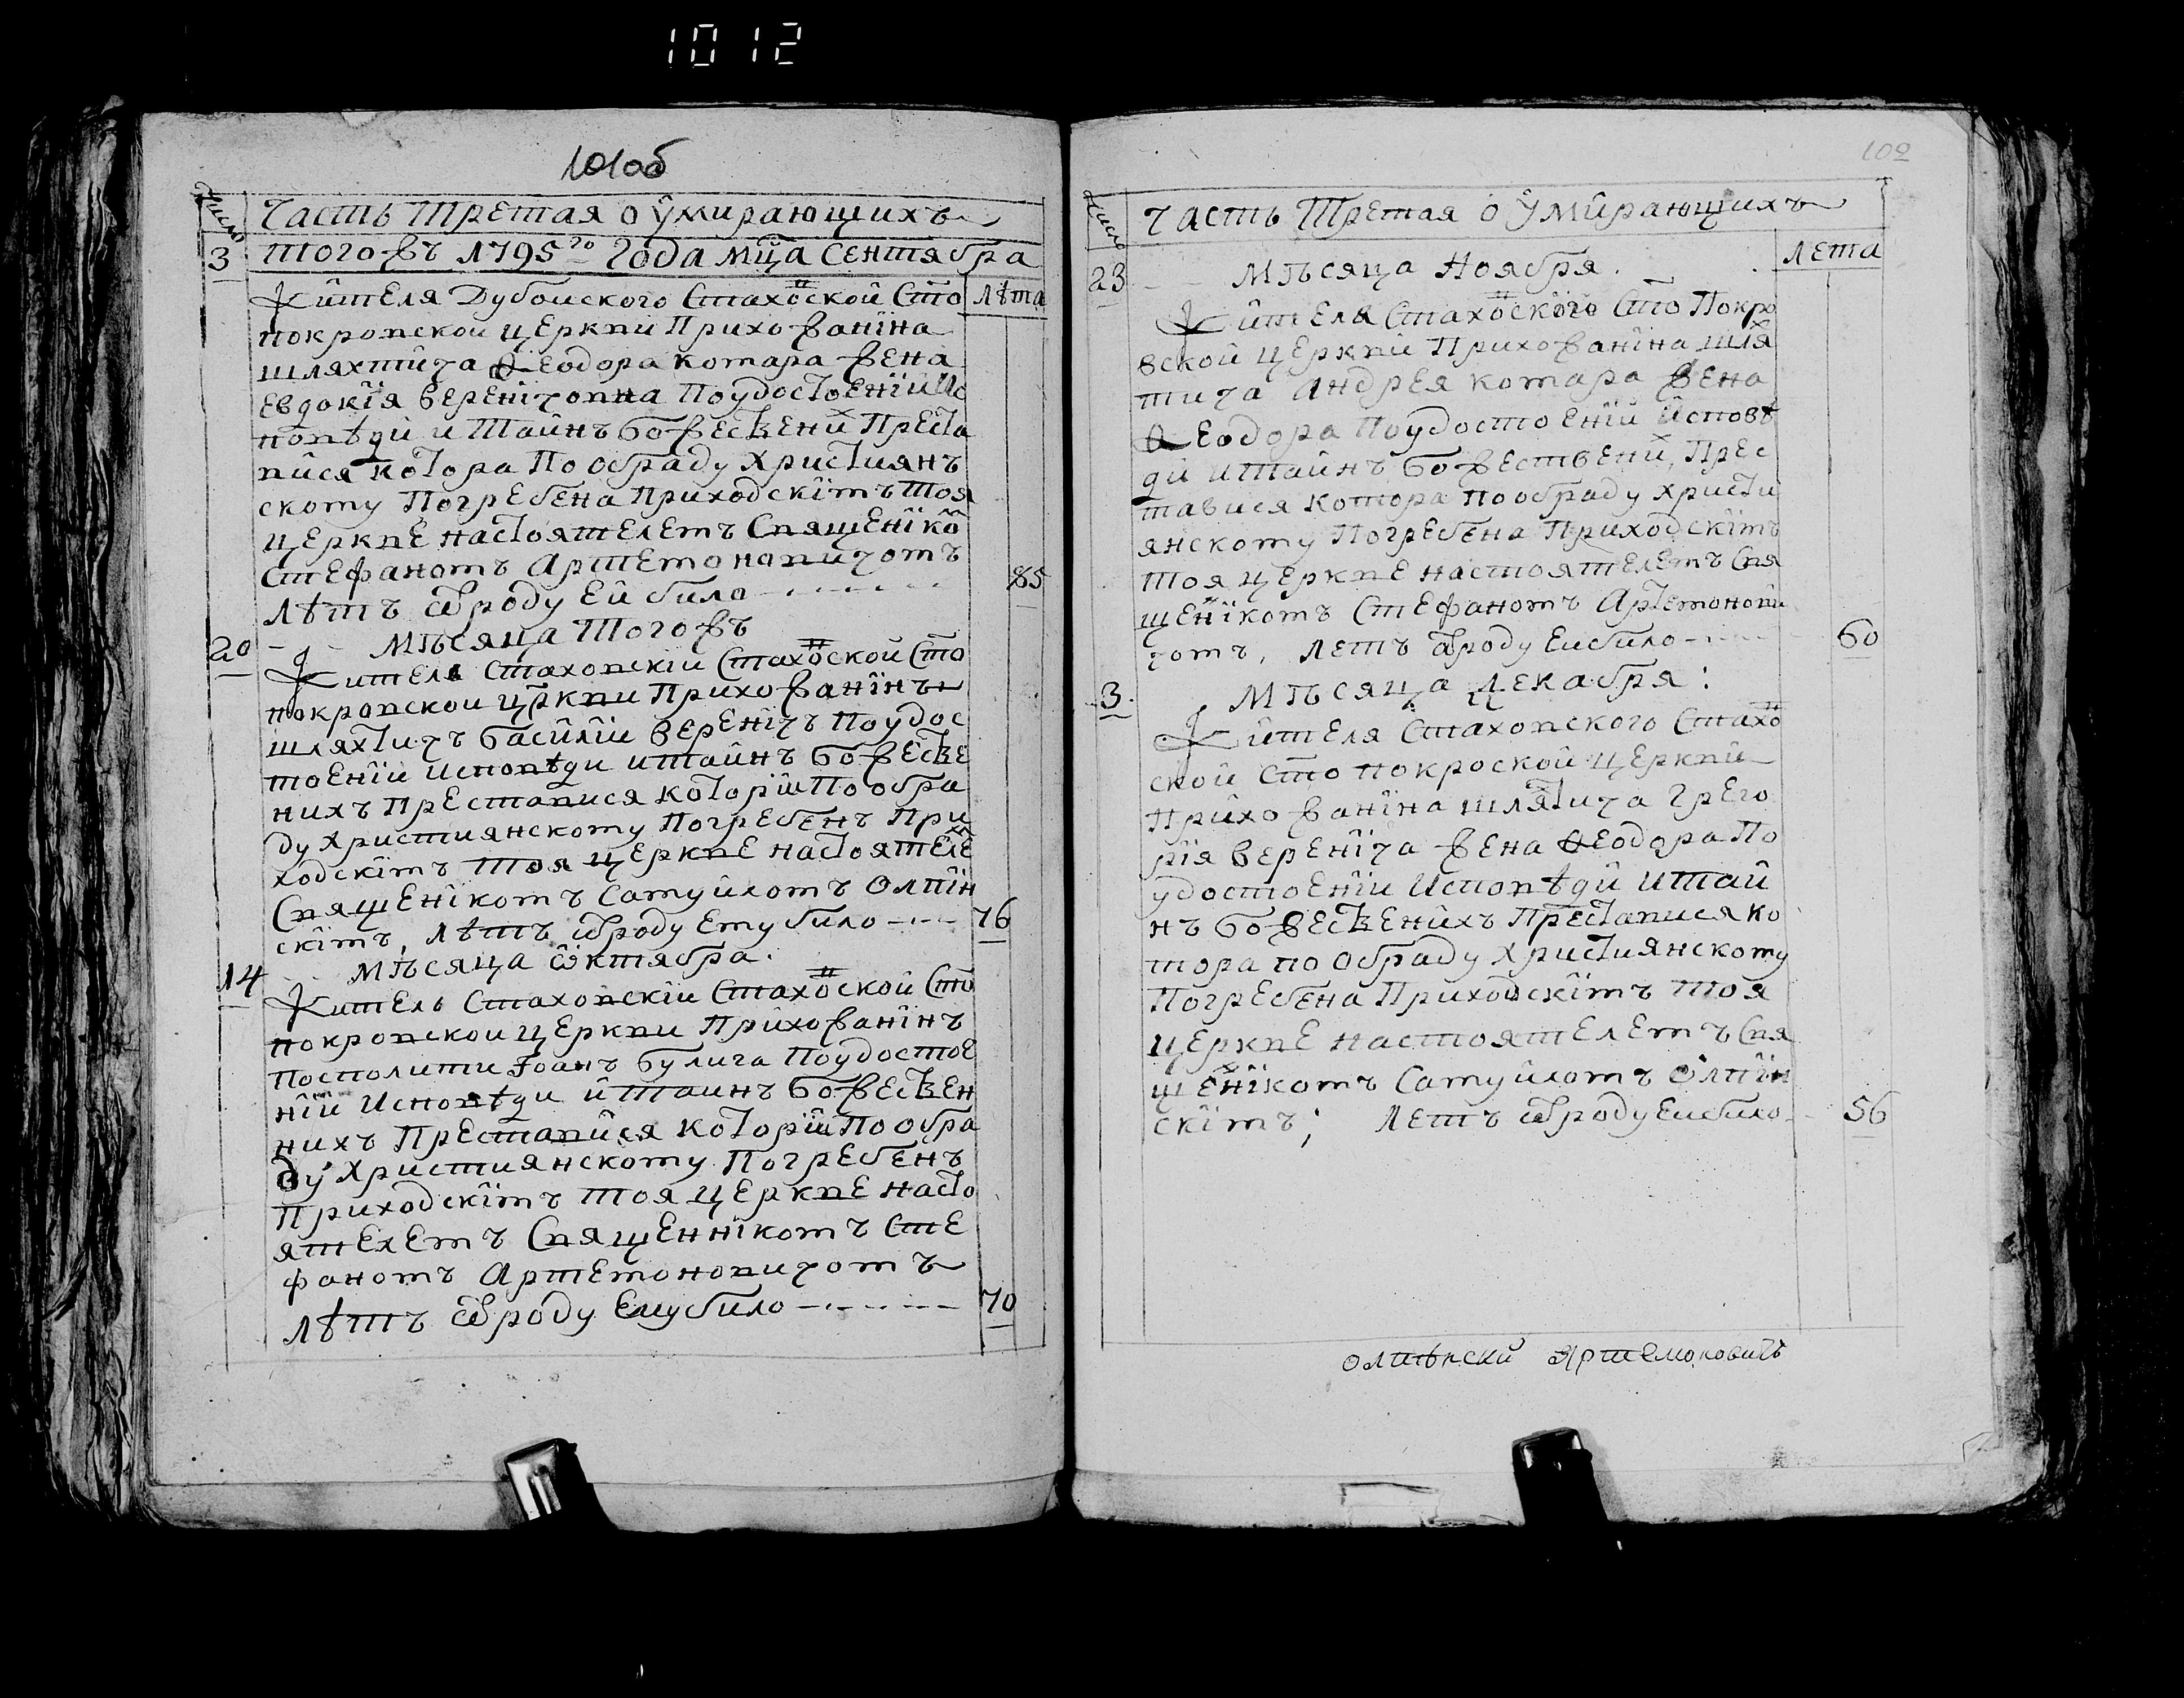 1012
101об
Число
Часть Третая о умирающихъ
3 Тогожъ 1795го Года мца Сентября
Жителя Дубоиского Стахоской Сто Лѣта
покровской церкви Прихожанїна
шляхтича Ѳеодора котара жена
Евдокїя Веренїчовна По удостоенїи Ис
повѣди и Таинъ Божествени Преста
вися котора По обраду Християнъ
скому Погребена Приходскїмъ Тоя
церкве настоятелемъ Священїко
Стефаномъ Артемоновичомъ
Лѣтъ ѿ роду ей било 85
20 Мѣсяца Тогожъ
Жителя Стаховскїи Стахоской Сто
покровскои цркви Прихожанїнъ
шляхтичъ Василїи Веренїчъ По удос
тоенїи исповѣди и таинъ Божестве
нихъ Преставися которїи По обра
ду Християнскому Погребенъ При
ходскїмъ тоя церкве настоятеле
Священїкомъ Самуиломъ Олпїн
скїмъ, Лѣтъ ѿ роду ему било 76
14 Мѣсяца ѡктября.
Житель Стаховскїи Стахоской Сто
покровскои церкви Прихожанїнъ
Посполити Iоанъ Булига По удостое
нїи Исповѣди и Таинъ Божествен
нихъ Преставися которїи По обра
ду Християнскому Погребенъ
Приходскїмъ тоя церкве насто
ятелемъ Священнїкомъ Сте
фаномъ Артемоновичомъ
Лѣтъ ѿ роду Ему било 70
102
Число
Часть Третая о Умирающихъ
23 Мѣсяца Ноября. Лета
Жителя Стахоского Сто Покро
вской церкви Прихожанїна шля
тича Андрея котара жена
Ѳеодора По удостоенїи Исповѣ
ди и таинъ Божествени, Прес
тавися котора по обраду Христи
янскому Погребена Приходскїмъ
Тоя церкве настоятелемъ Свя
щенїкомъ Стефаномъ Артемонови
чомъ, Летъ ѿ роду Еи било 60
3. Мѣсяца Декабря:
Жителя Стаховского Стахо
ской Сто покроской церкви
Прихожанїна шлятича Грего
рїя Веренїча жена Ѳеодора По
удостоенїи Исповѣди и Таи
нъ Божественихъ Преставися ко
тора по обраду Християнскому
Погребена Приходскїмъ Тоя
церкве настоятелемъ Свя
щенїкомъ Самуиломъ Олпїн
скїмъ; Летъ ѿ роду Еи било 56
Олпѣнски Артемоновичъ